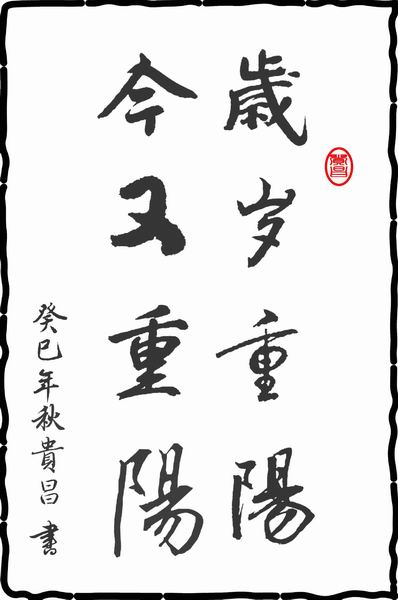 歲岁重陽
今又重陽
癸巳年秋貴昌書